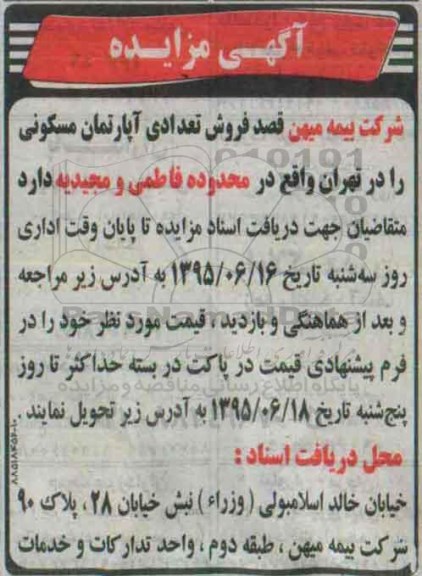 آگهی مزایده
شرکت بیمه میهن قصد فروش تعدادی آپارتمان مسکونی
را در تهران واقع در محدوده فاطمی و مجیدیه دارد
متقاضیان جهت دریافت اسناد مزایده تا پایان وقت اداری
روز سه‌شنبه تاریخ ۱۳۹۵/۰۶/۱۶ به آدرس زیر مراجعه
و بعد از هماهنگی و بازدید ، قیمت مورد نظر خود را در
فرم پیشنهادی قیمت در پاکت در بسته حداکثر تا روز
پنج‌شنبه تاریخ ۱۳۹۵/۰۶/۱۸ به آدرس زیر تحویل نمایند .
محل دریافت اسناد :
خیابان خالد اسلامبولی ( وزراء ) نبش خیابان ۲۸ ، پلاک ۹۰
شرکت بیمه میهن ، طبقه دوم ، واحد تدارکات و خدمات